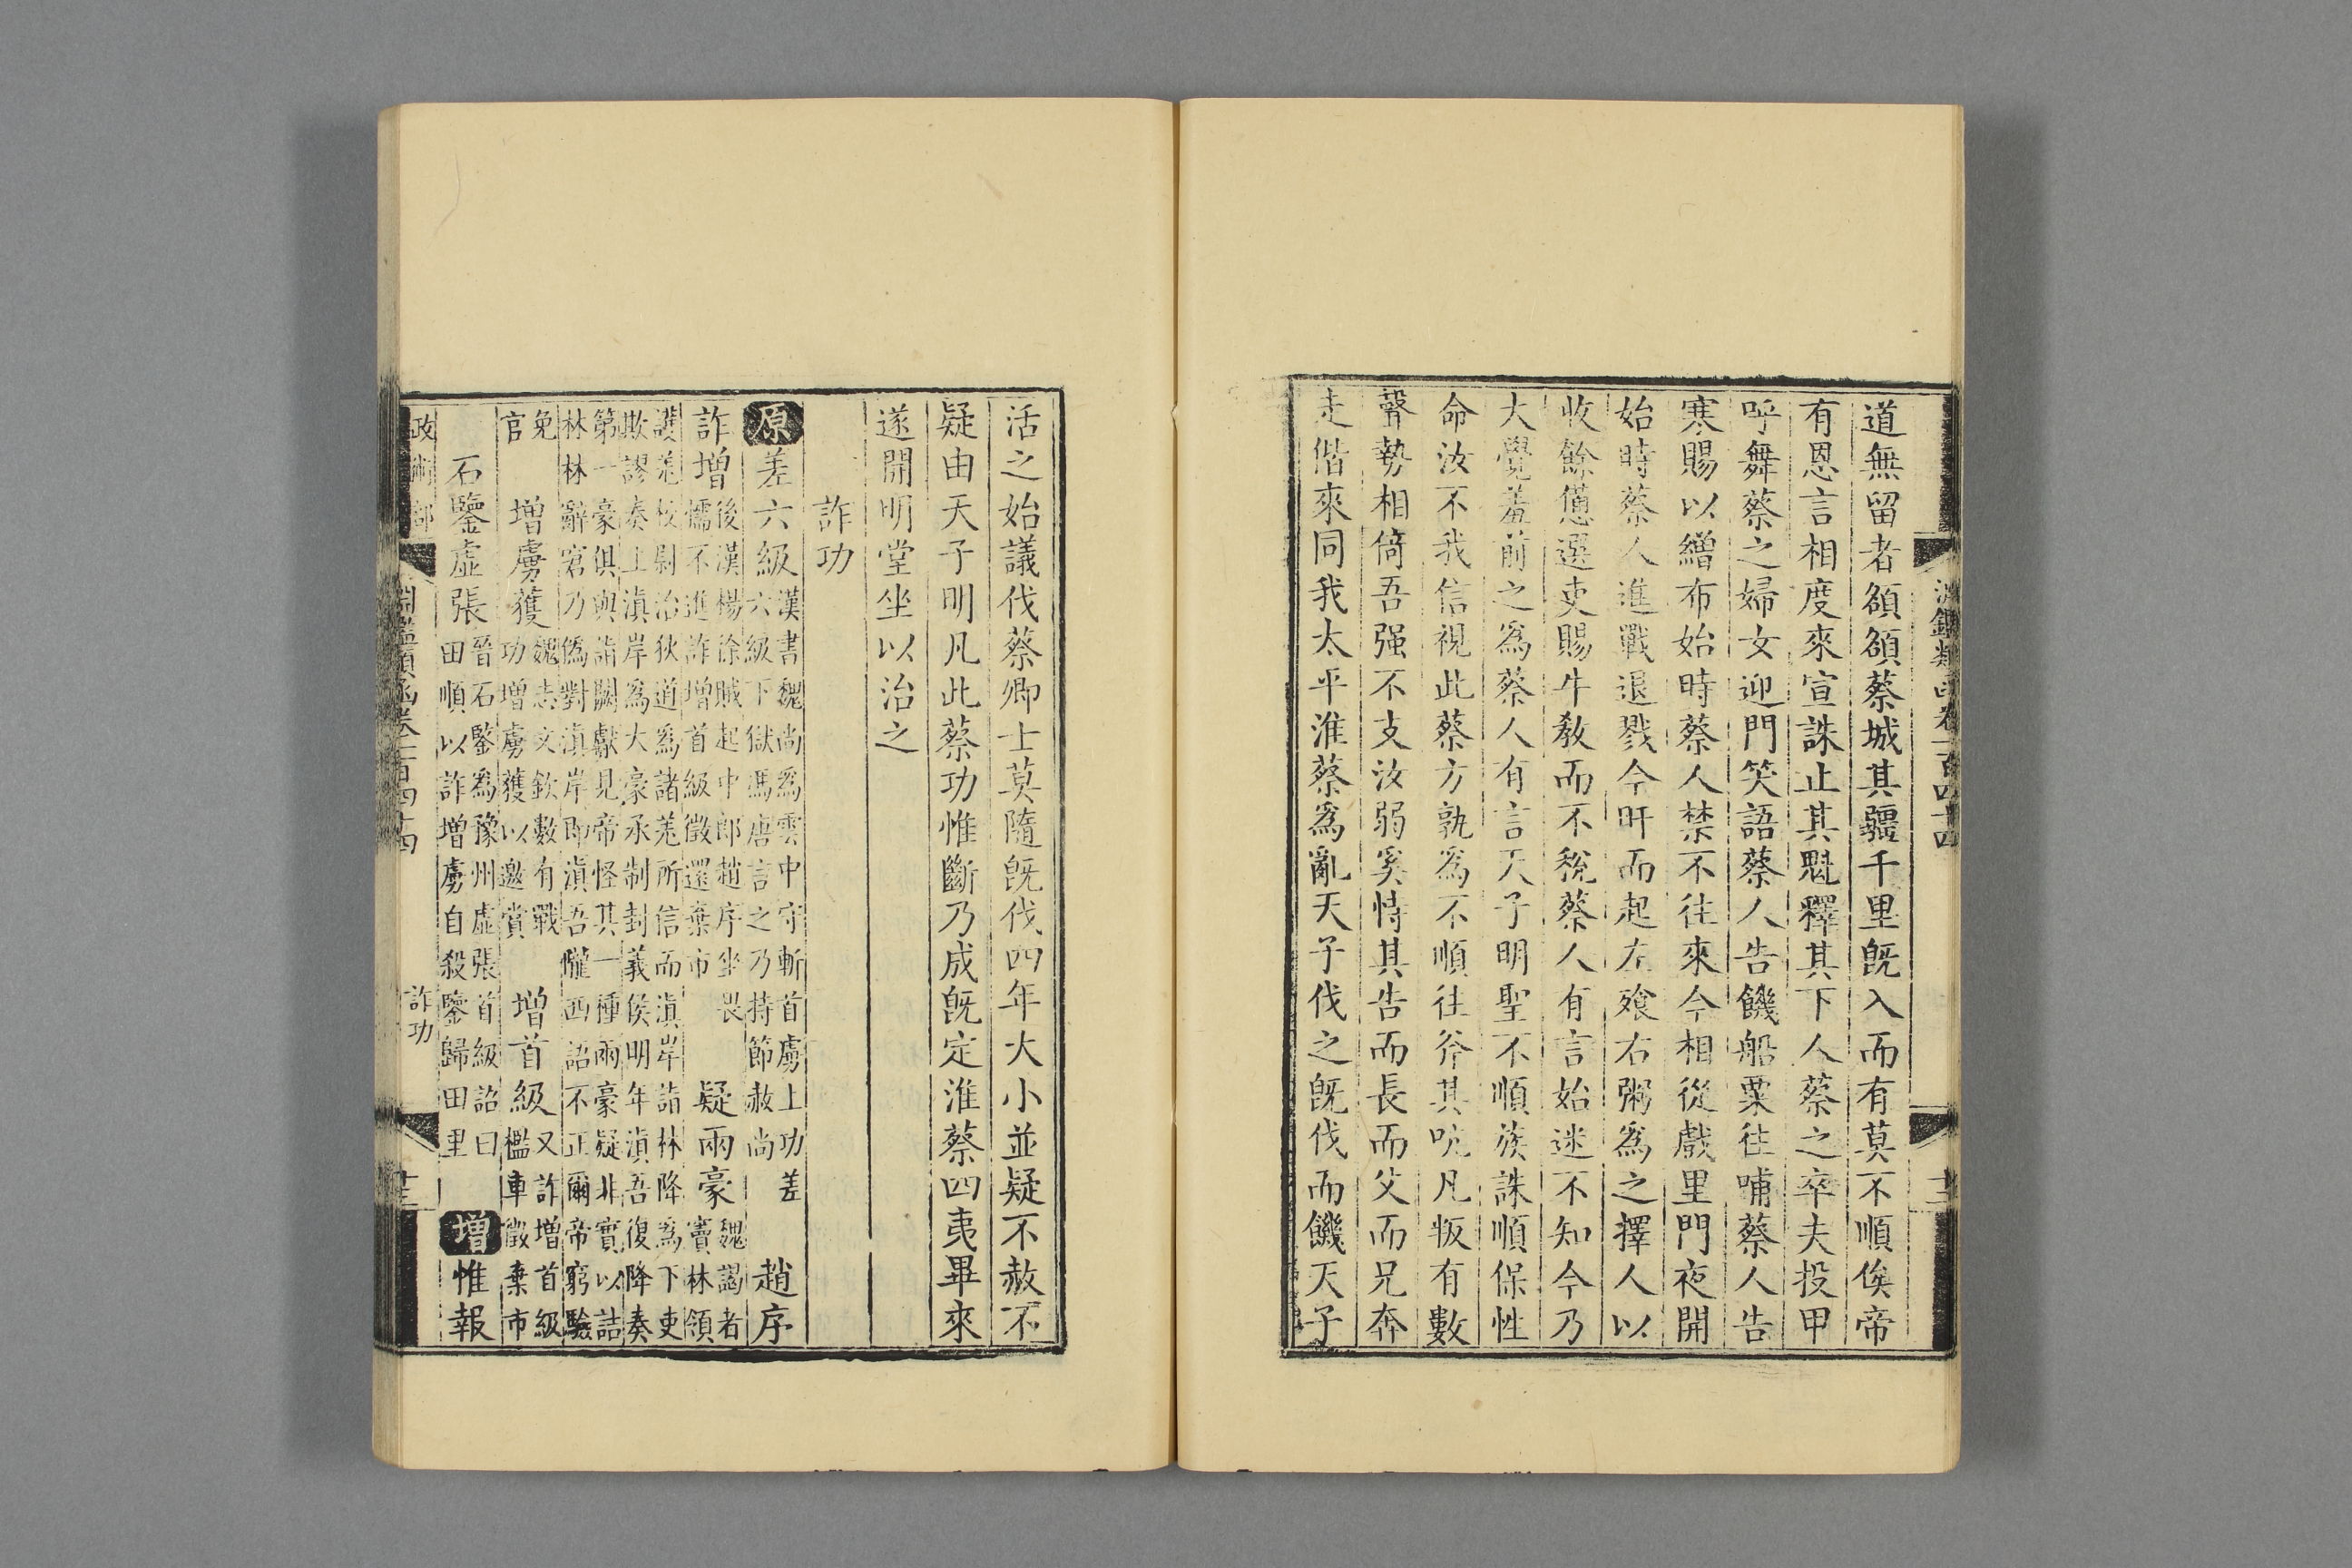 淵鑑類函卷二百四十四
十二
道無留者頟頟蔡城其疆千里旣入而有莫不順俟帝
有恩言相度來宣誅止其魁釋其下人蔡之卒夫投甲
呼舞蔡之婦女迎門笑語蔡人告饑船粟往哺蔡人告
寒賜以繒布始時蔡人禁不往來今相從戲里門夜開
始時蔡人進戰退戮今旰而起左飱右粥爲之擇人以
收餘憊選吏賜牛敎而不稅蔡人有言始迷不知今乃
大覺羞前之爲蔡人有言天子明聖不順族誅順保性
命汝不我信視此蔡方孰爲不順往斧其吭凡叛有數
聲勢相倚吾强不支汝弱奚恃其告而長而父而兄奔
走偕來同我太平淮蔡爲亂天子伐之旣伐而饑天子
活之始議伐蔡卿士莫隨旣伐四年大小並疑不赦不
疑由天子明凡此蔡功惟斷乃成旣定淮蔡四夷畢來
遂開明堂坐以治之
詐功
原差六級漢書魏尚爲雲中守斬首虜上功差六級下獄馮唐言之乃持節赦尚趙序
詐增後漢楊徐賊起中郎趙序坐畏懦不進詐增首級徵還棄市疑兩豪魏謁者竇林領
護羌校尉治狄道爲諸羌所信而滇岸詣林降爲下吏
欺謬奏上滇岸爲大豪承制封義侯明年滇吾復降奏
第一豪俱與詣闕獻見帝怪其一種兩豪疑非實以詰
林林辭窘乃僞對滇岸卽滇吾隴西語不正爾帝窮驗
免官增虜獲魏志文欽數有戰功增虜獲以邀賞增首級又詐增首級檻車徵棄市
石鑒虛張晉石鑒爲豫州虛張首級詔曰田順以詐增虜自殺鑒歸田里增惟報
政術部
淵鑑類函卷二百四十四
詐功
十三